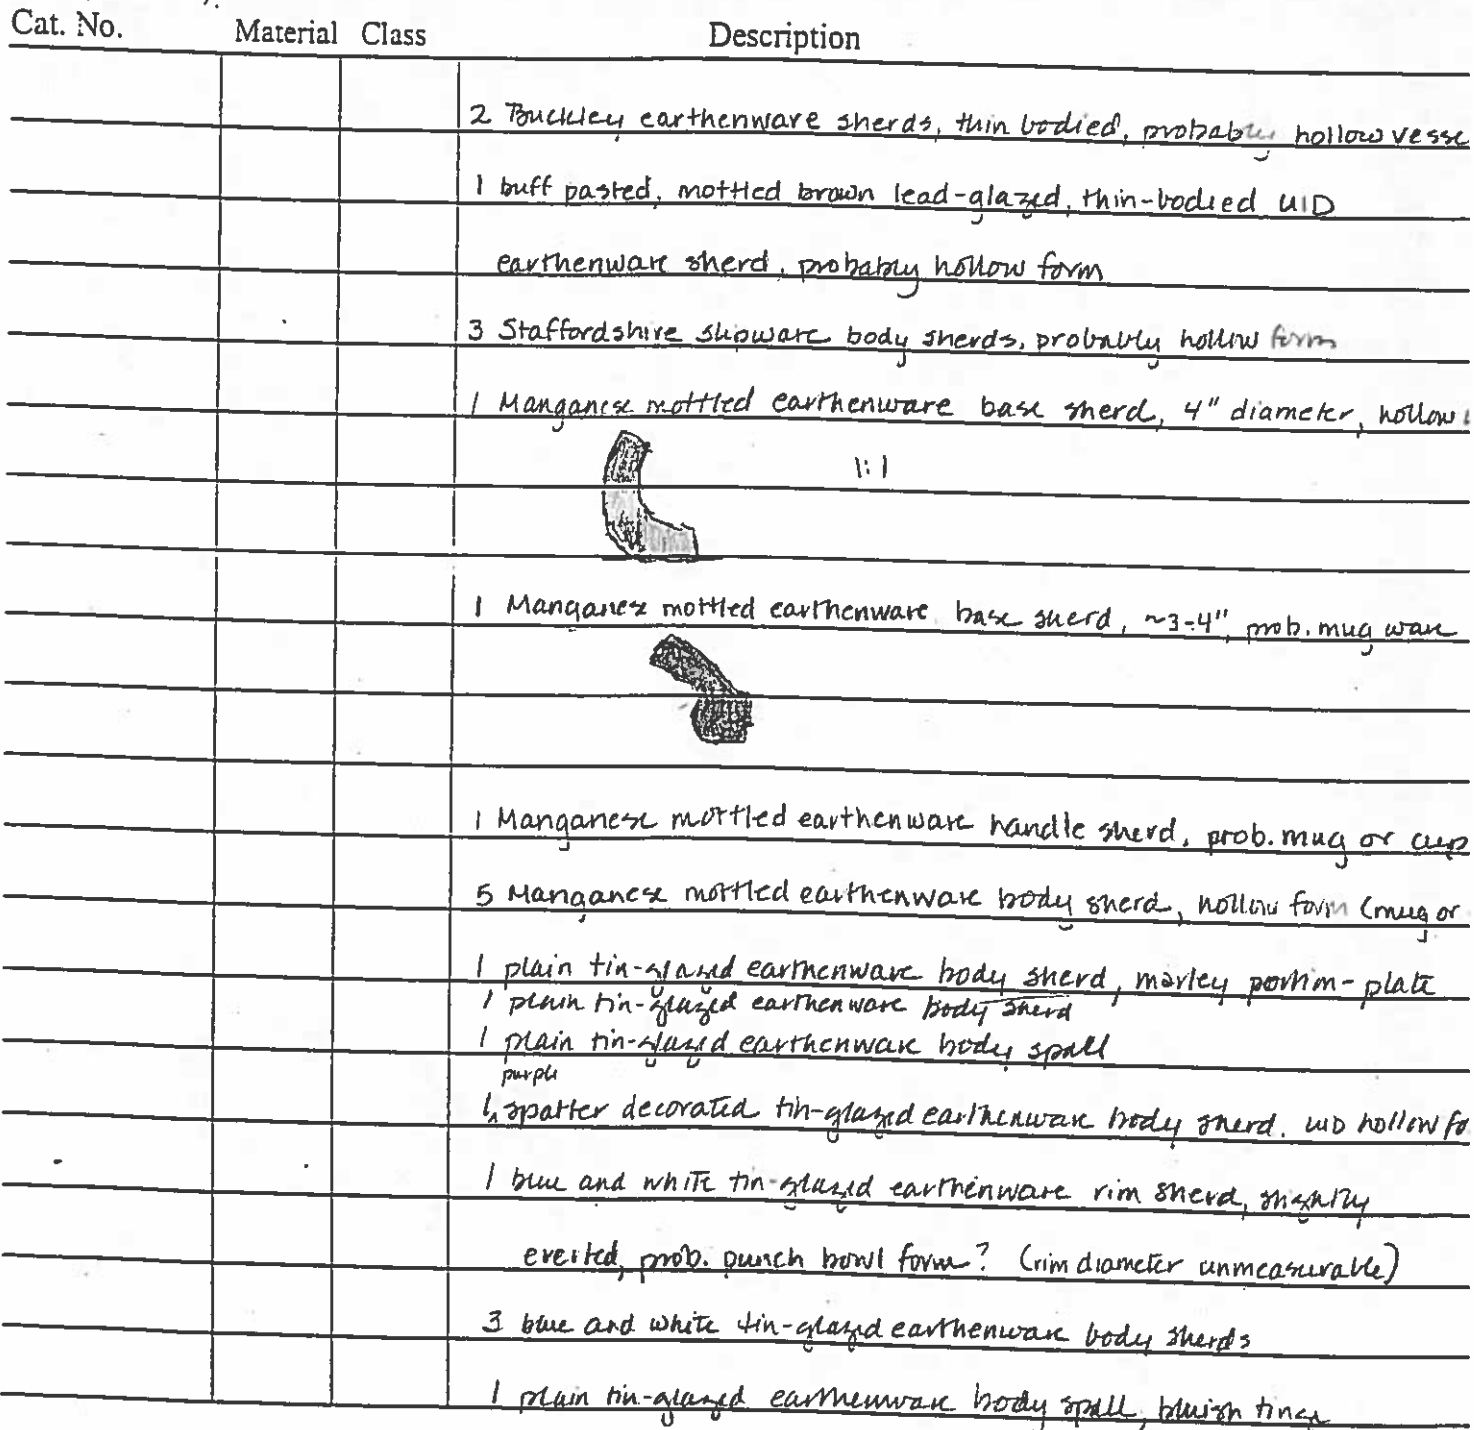 Cat. No. Material Class Description
2 Buckley earthenware sherds, thin bodied, probably hollow vesse
1 buff pasted, mottled brown lead-glazed, thin-bodied UID
earthenware sherd, probably hollow form
3 Staffordshire slipware body sherds, probably hollow form
1 Manganese mottled earthenware base sherd, 4" diameter, hollow
1:1
1 Manganese mottled earthenware base sherd, ~3-4" prob. mug ware
1 Manganese mottled earthenware handle sherd, prob. mug or cup
5 Manganese mottled earthenware body sherd, hollow form (mug or
1 plain tin-glazed earthenware body sherd, marley portion - plate
1 plain tin-glazed earthenware body sherd
1 plain tin-glazed earthenware body spall
purple
1 spatter decorated tin-glazed earthenware body sherd. UID hollow fo
1 blue and white tin-glazed earthenware rim sherd, slightly
everted, prob. punch bowl form? (rim diameter unmeasurable)
3 blue and white tin-glazed earthenware body sherds
1 plain tin-glazed earthenware body spall, bluish tinge